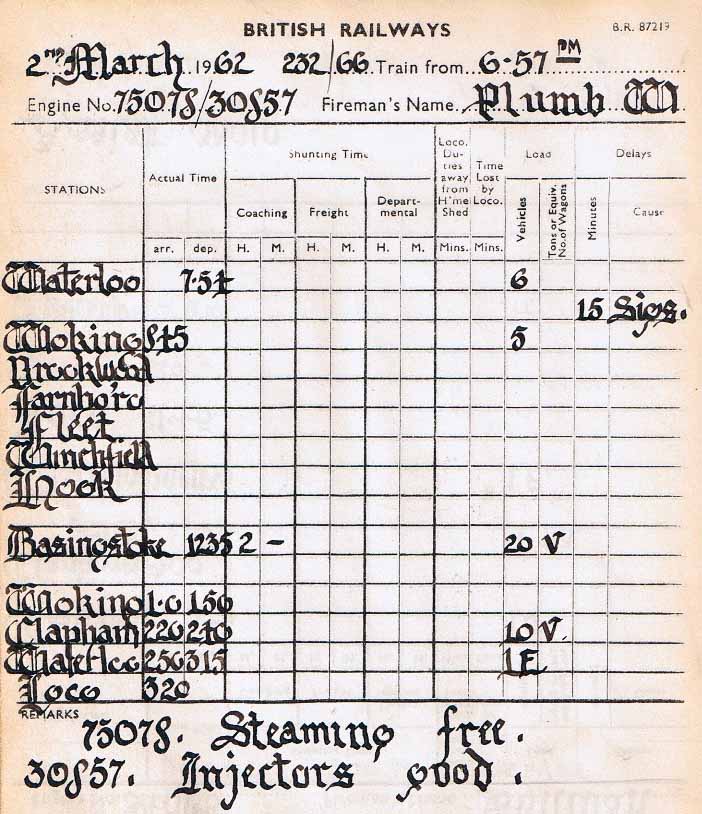 BRITISH RAILWAYS B.R. 87219
2ND March 1962 232/66 Train from 6-57 PM
Engine No. 75078/30857 Fireman's Name Plumb W
STATIONS Actual Time Shunting Time Loco. Du- ties away from H'me Shed Time Lost by Loco. Load Delays
Coaching Freight Depart- mental Vehicles Tons or Equiv. No. of Wagons Minutes Cause
arr. dep. H. M. H. M. H. M. Mins. Mins.
Waterloo 7.54 6
15 Sigs.
Woking 845 5
Brookwood
Farnboro
Fleet
Winchfield
Hook
Basingstoke 1235 2 - 20 V
Woking 1.0 150
Clapham 220 240 10 V.
Waterloo 250 315 1E
Loco 320
REMARKS
75078. Steaming free.
30857. Injectors good.